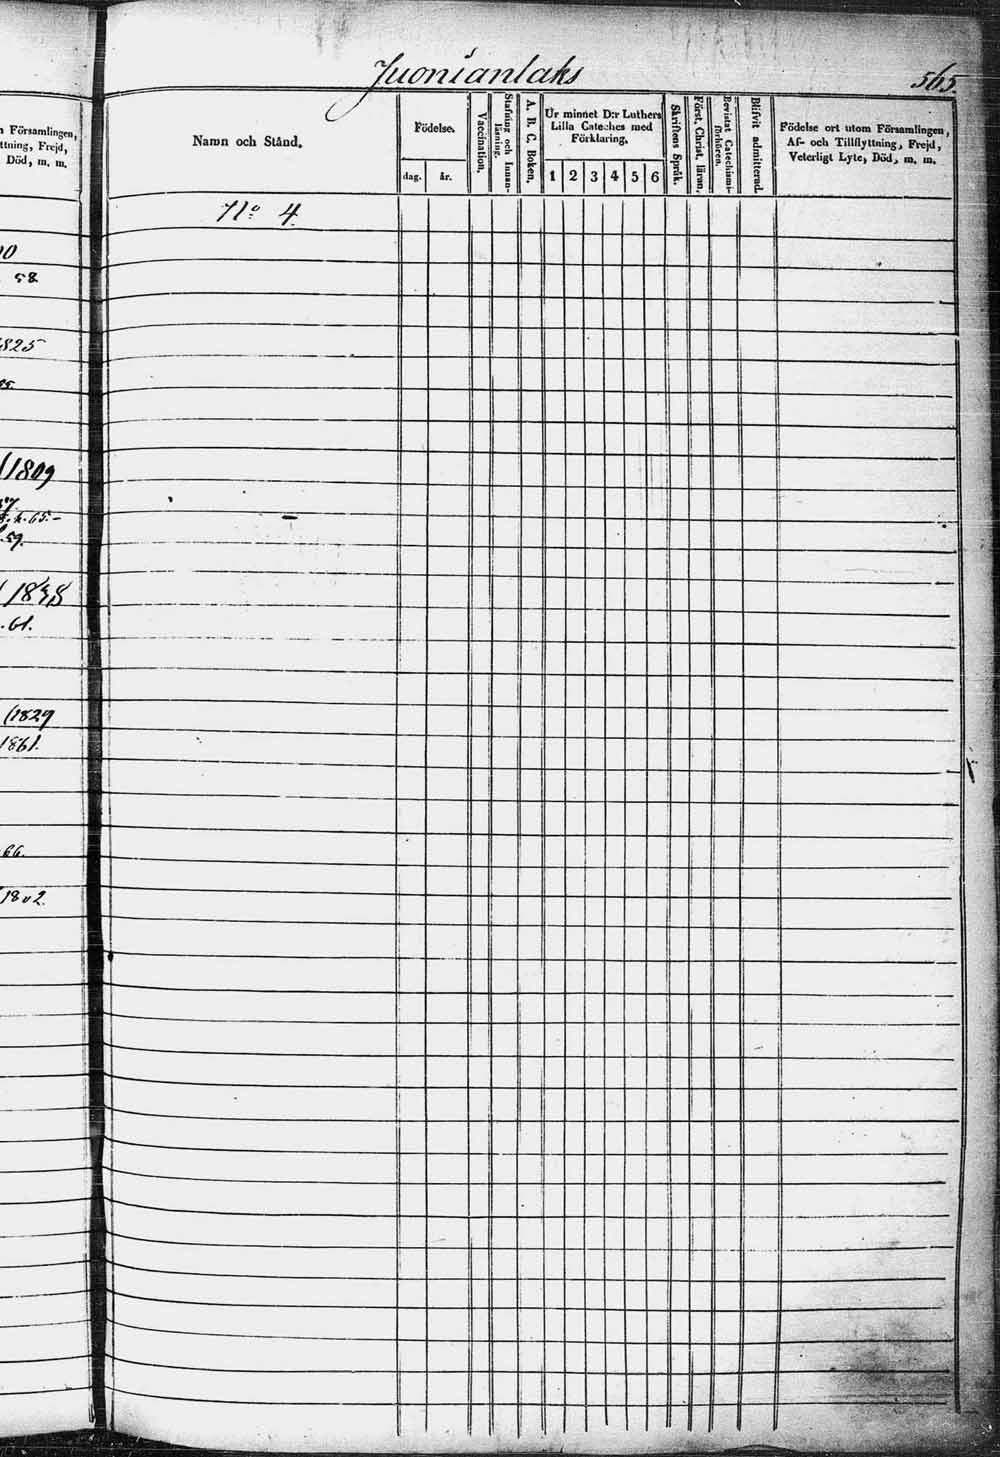 Juonianlaks
565.
n Församlingen,
ttning, Frejd,
Död, m. m.
Namn och Stånd.
Födelse.
dag.
år.
Vaccination.
Stafning och Innan-
läsning.
A. B. C. Boken.
Ur minnet D:r Luthers
Lilla Cateches med
Förklaring.
1 2 3 4 5 6
Skriftens Språk.
Först. Christ. läran.
Bevistat Catechismi-
förhören.
Blifvit admitterad.
Födelse ort utom Församlingen,
Af- och Tillflyttning, Frejd,
Veterligt Lyte, Död, m. m.
No 4.
58
825
1809
65.-
.59.
1838
.61.
(1829
1861.
66.
1802.